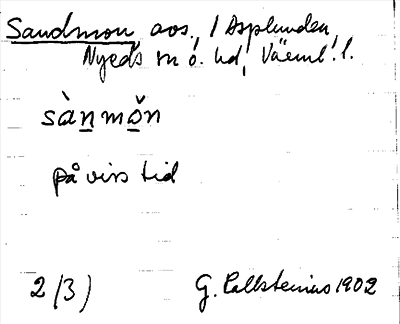 Sandmon avs., 1 Asplunden,
Nyeds sn o. hd, Värml. l.
sànmǒn
på virs tid
2/3)
G. Kallstenius 1902